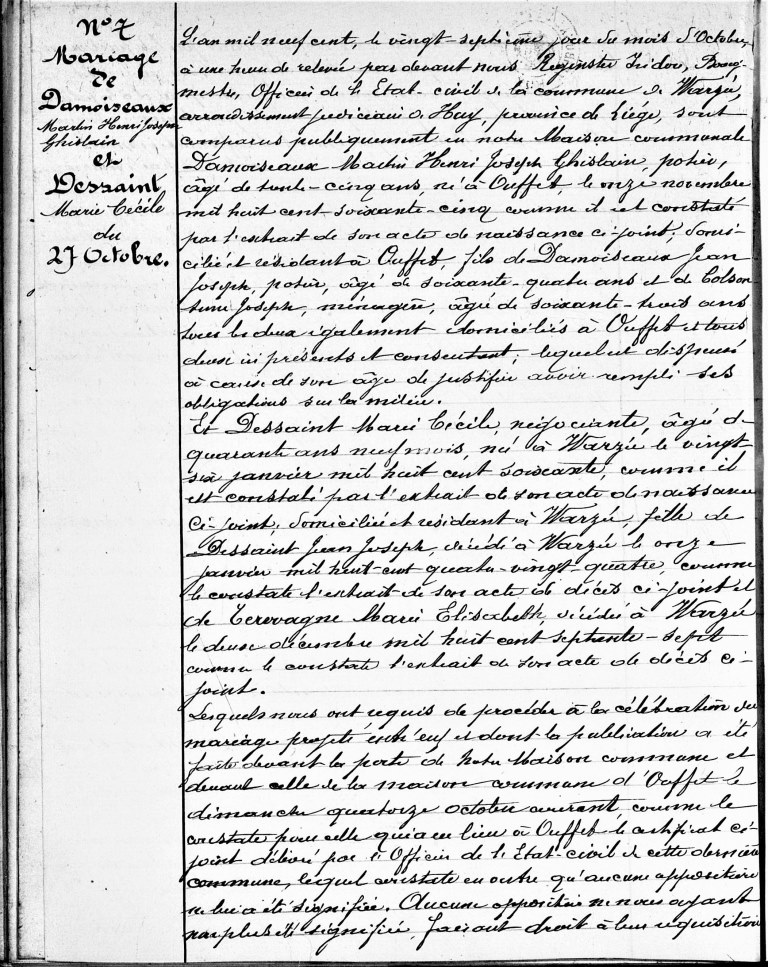 N° 7
Mariage
de
Damoiseaux
Martin Henri Joseph
Ghislain
et
Dessaint,
Marie Cécile
du
27 Octobre.
L'an mil neuf cent, le vingt-septième jour du mois d'Octobre,
à une heure de relevée par devant nous Reginster Isidore, Bourg-
mestre, Officier de l'Etat-civil de la commune de Warzée,
arrondissement judiciaire de Huy, province de Liége, sont
comparus publiquement en notre Maison communale
Damoiseaux Martin Henri Joseph Ghislain, potier,
âgé de trente-cinq ans, né à Ouffet le onze novembre
mil huit cent-soixante-cinq comme il est constaté
par l'extrait de son acte de naissance ci-joint, domi-
cilié et résidant à Ouffet, fils de Damoiseaux Jean
Joseph, potier, âgé de soixante-quatre ans et de Colson
Joseph, ménagère, âgée de soixante-trois ans
tous les deux également domiciliés à Ouffet et tous
deux ici présents et consentant; lequel est dispensé
à cause de son âge de justifier avoir rempli ses
obligations sur la milice.
Et Dessaint Marie Cécile, négociante, âgée de
quarante ans neuf mois, née à Warzée le vingt
six janvier mil huit cent soixante, comme il
est constaté par l'extrait de son acte de naissance
ci-joint, domiciliée et résidant à Warzée, fille de
Dessaint Jean Joseph, décédé à Warzée le onze
janvier mil huit-cent quatre-vingt-quatre, comme
le constate l'extrait de son acte de décès ci-joint et
de Terovagne Marie Elisabeth, décédée à Warzée
le deux décembre mil huit cent septante-sept
comme le constate l'extrait de son acte de décès ci-
joint.
Lesquels nous ont requis de procéder à la célébration du
mariage projeté entr'eux et dont la publication a été
faite devant la porte de notre Maison commune et
devant celle de la maison commune d'Ouffet le
dimanche quatorze octobre courant, comme le
constate pour celle qui a eu lieu à Ouffet le certificat ci-
joint délivré par l'Officier de l'Etat-civil de cette dernière
commune, lequel constate en outre qu'aucune opposition
ne lui a été signifiée. Aucune opposition ne nous ayant
non plus été signifiée, faisant droit à leur réquisition